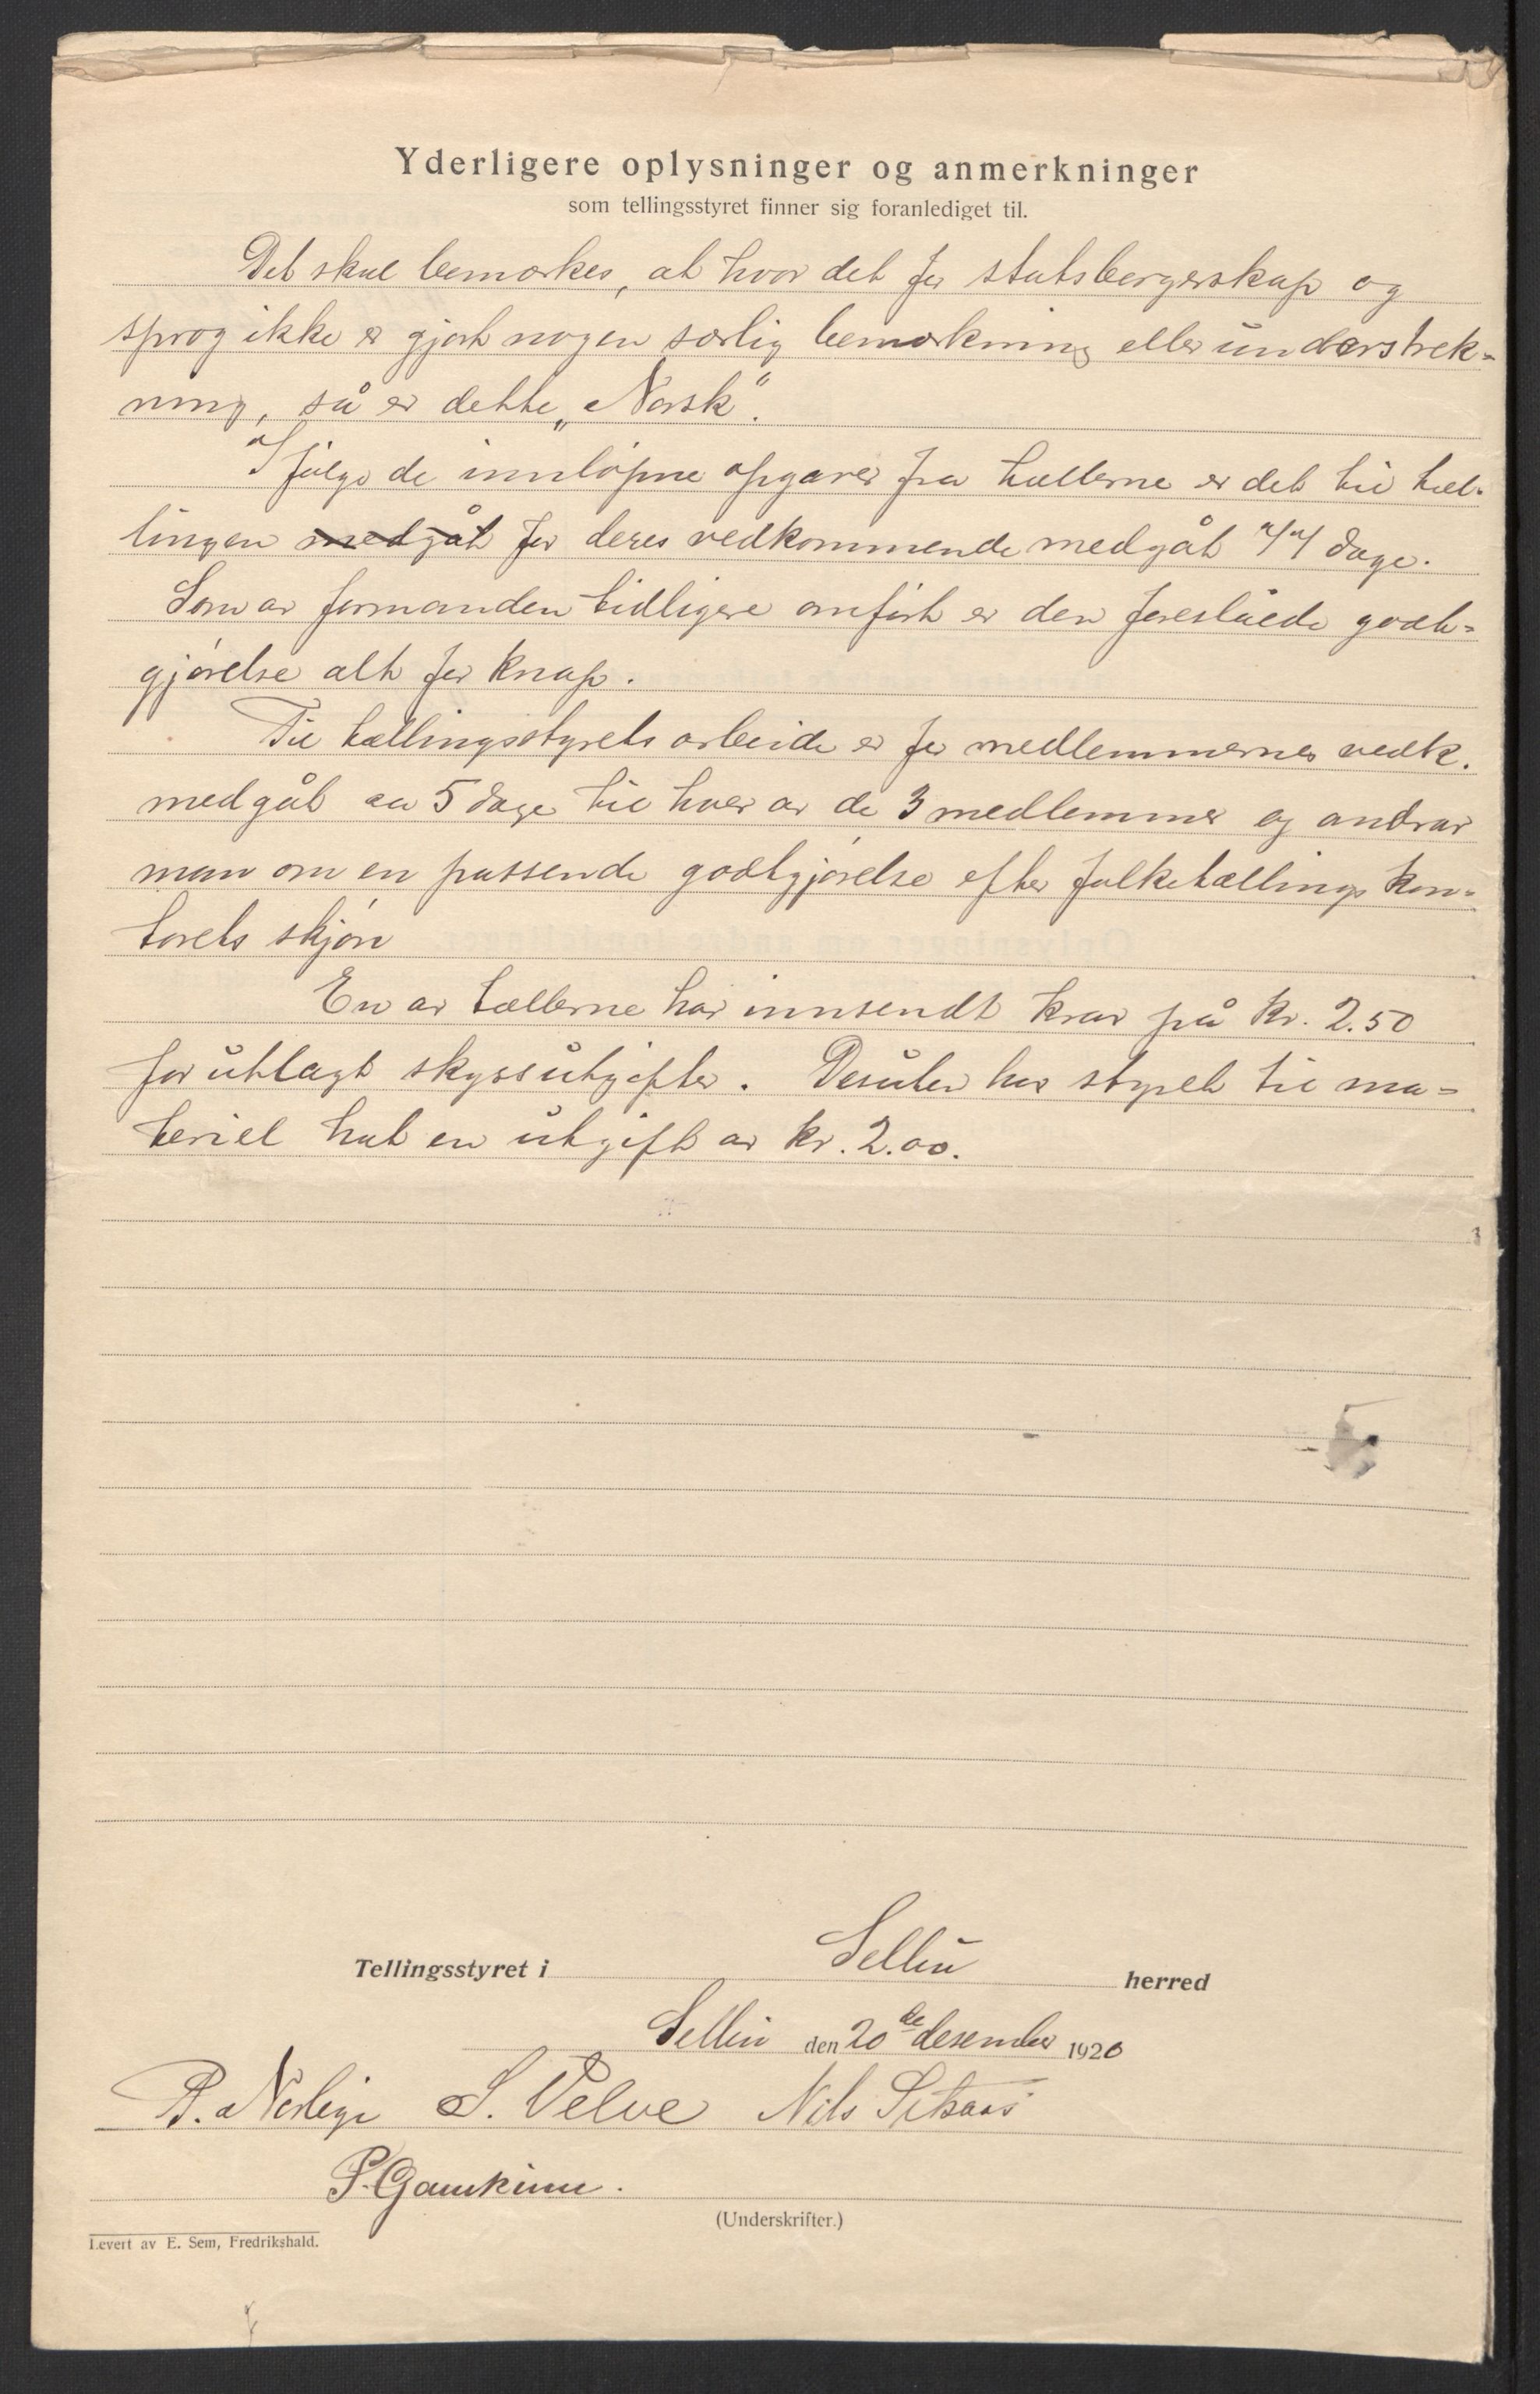 Yderligere oplysninger og anmerkninger
som tellingsstyret finner sig foranlediget til.
Det skal bemærkes, at hvor det for statsborgerskap og
sprog ikke er gjort nogen særlig bemærkning eller understrek-
ning, så er dette „Norsk“.
Ifølge de innløpne opgaver fra tællerne er det til tæl-
lingen medgåt for deres vedkommende medgåt 44 dage.
Som av formanden tidligere anført er den foreslåede godt-
gjørelse alt for knap.
Til tællingsstyrets arbeide er for medlemmernes vedk.
medgåt ca 5 dage til hver av de 3 medlemmer og andrar
man om en passende godtgjørelse efter folketællings kon-
torets skjøn
En av tællerne har innsendt krav på kr. 2.50
for utlagt skyssutgifter. Desuten har styret til ma-
teriel hat en utgift av kr. 2.00.
Tellingsstyret i Selbu herred
Selbu den 20de desember 1920
P. Norbye S. Velve Nils Sitaas
P. Garnkinn.
(Underskrifter.)
Levert av E. Sem, Fredrikshald.